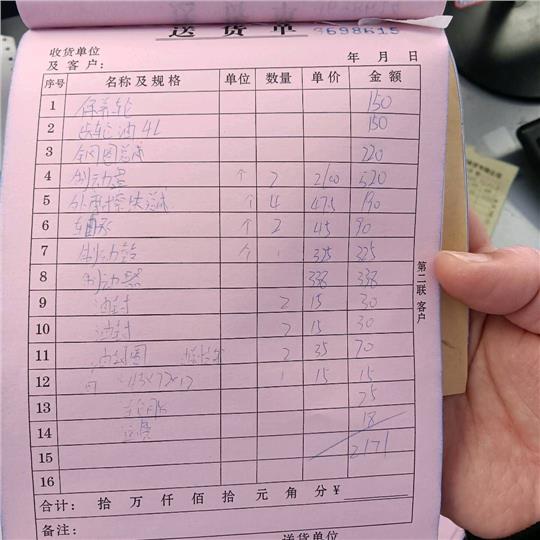 送货单 3698615
收货单位
及 客户：
年 月 日
序号 名称及规格 单位 数量 单价 金额
1 保养轮 150
2 齿轮油4L 150
3 钢圈总成 220
4 制动总 个 2 520
5 外摩擦块总成 个 4 47.5 190
6 轴承 个 2 45 90
7 制动鼓 个 1 325 325
8 制动器 338 338
9 油封 2 15 30
10 油封 2 15 30
11 油封圈 2 35 70
12 1 15 15
13 25
14 运费 18
15 2171
16
合计： 拾 万 仟 佰 拾 元 角 分 ¥
备注：
送货单位
第二联 客户